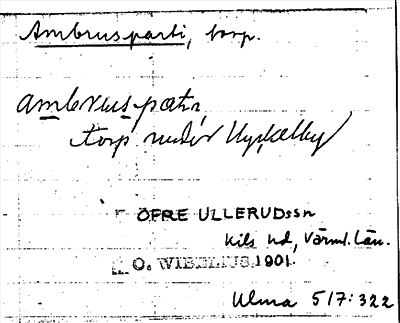 Ambrusparti, torp.
ambrus patn,
torp under Hyckelby
ÖFRE ULLERUDssn
Kils hd, Värml. län.
O. WIBELIUS 1901.
Ulma 517:322